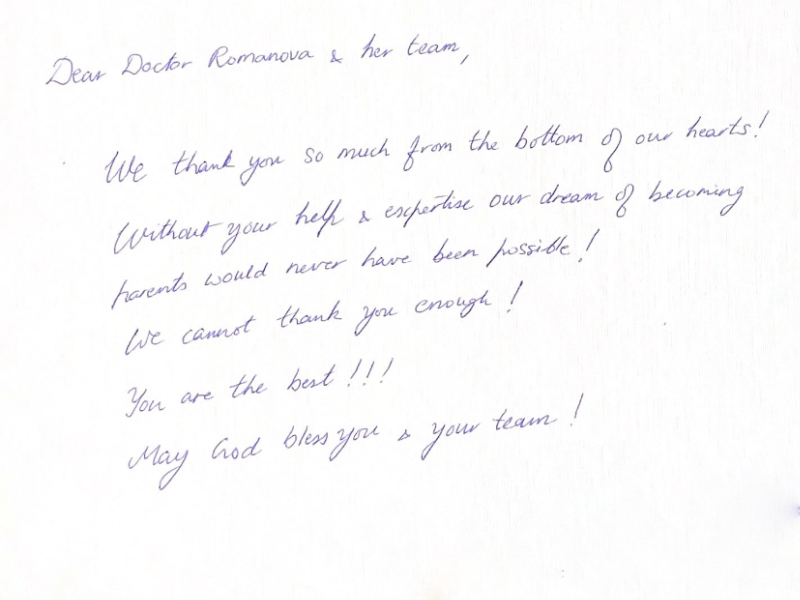 Dear Doctor Romanova & her team,
We thank you so much from the bottom of our hearts!
Without your help & expertise our dream of becoming
parents would never have been possible!
We cannot thank you enough!
You are the best!!!
May God bless you & your team!